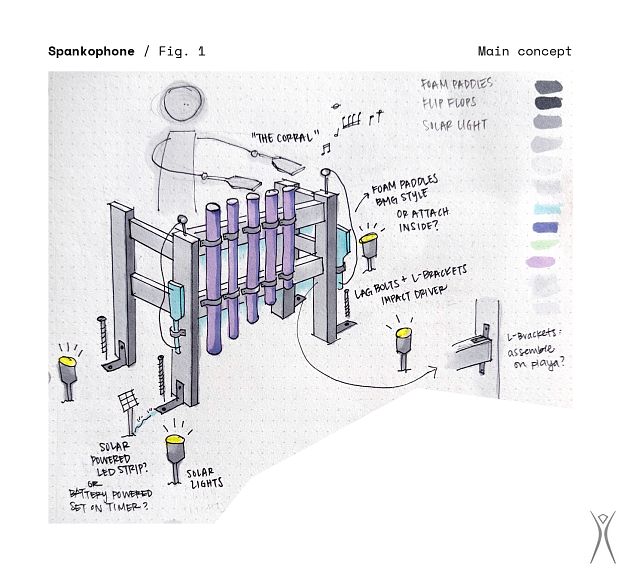 Spankophone / Fig. 1
Main concept
FOAM PADDLES
FLIP FLOPS
SOLAR LIGHT
"THE CORRAL"
FOAM PADDLES
BMG STYLE
OR ATTACH
INSIDE?
LAG BOLTS + L-BRACKETS
IMPACT DRIVER
L-Brackets:
assemble
on playa?
SOLAR
POWERED
LED STRIP?
OR
BATTERY POWERED
SET ON TIMER?
SOLAR
LIGHTS